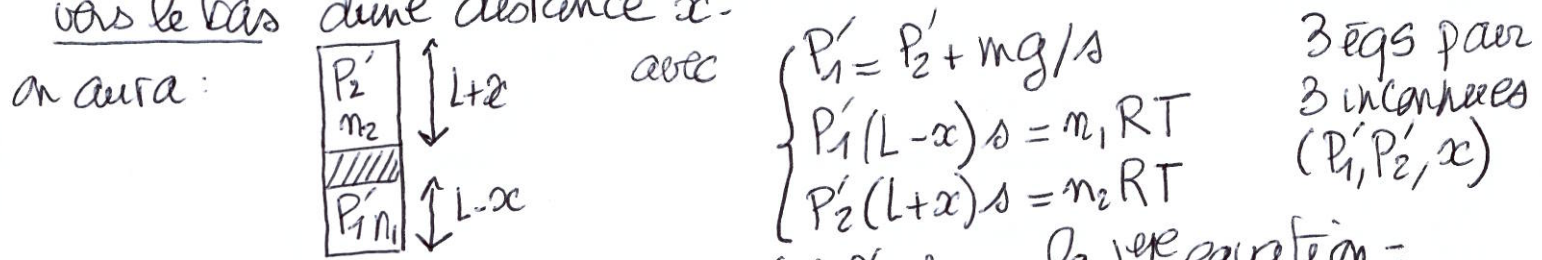 vers le bas d'une distance x-
on aura :
P₂'
n₂
L+x
P₁' n₁
L-x
avec
P₁' = P₂' + mg/s
P₁'(L-x)s = n₁RT
P₂'(L+x)s = n₂RT
3 éqs pour
3 inconnues
(P₁', P₂', x)